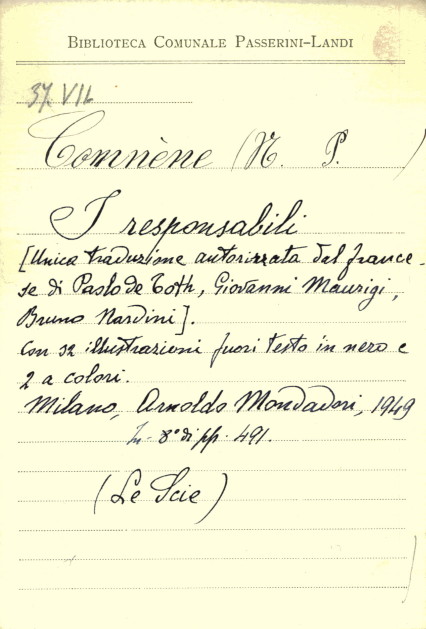 BIBLIOTECA COMUNALE PASSERINI-LANDI
37. VII
Comnène (N. P. )
I responsabili
[Unica traduzione autorizzata dal france-
se di Paolo de Toth, Giovanni Maurigi,
Bruno Nardini].
Con 32 illustrazioni fuori testo in nero e
2 a colori.
Milano, Arnoldo Mondadori, 1949
In-8° di pp. 491.
(Le Scie)